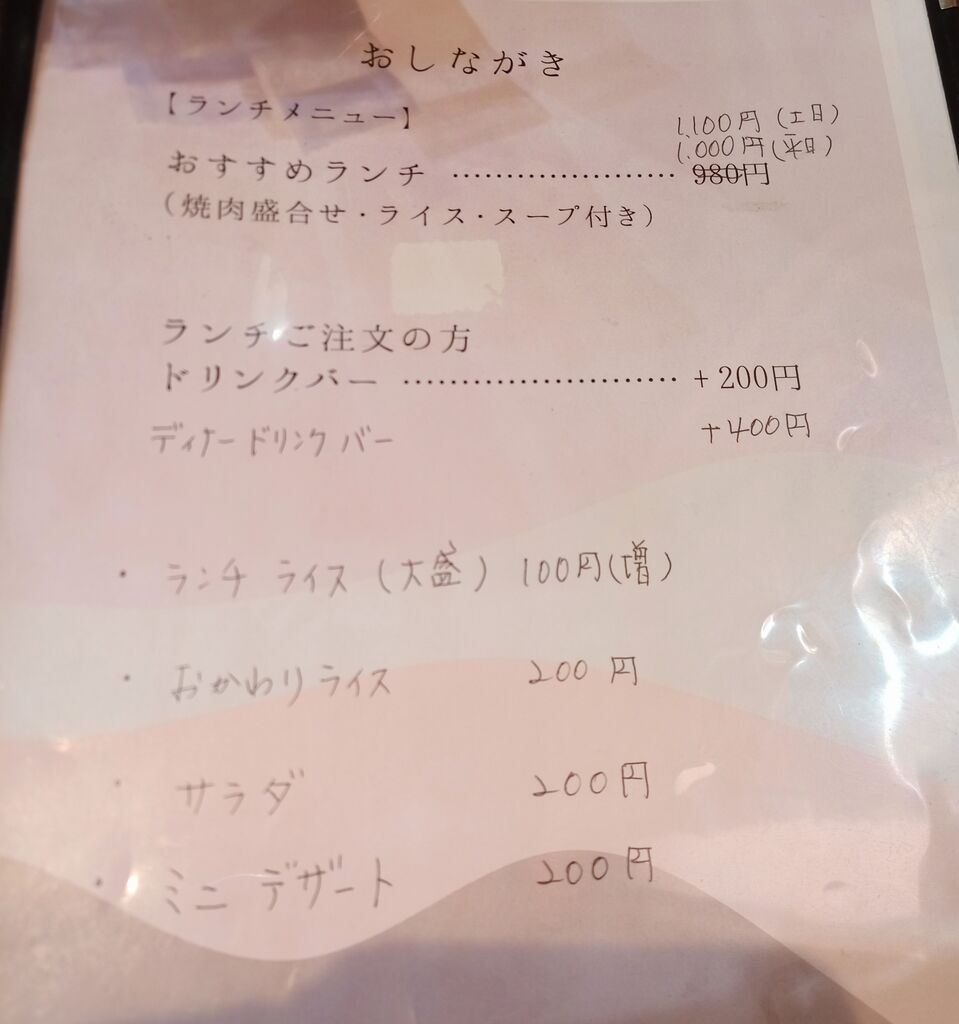 おしながき
【ランチメニュー】
1,100円(土日)
1,000円(平日)
おすすめランチ ………………… 980円
(焼肉盛合せ・ライス・スープ付き)
ランチご注文の方
ドリンクバー ……………………… +200円
ディナードリンクバー +400円
・ランチ ライス(大盛) 100円(増)
・おかわりライス 200円
・サラダ 200円
・ミニ デザート 200円